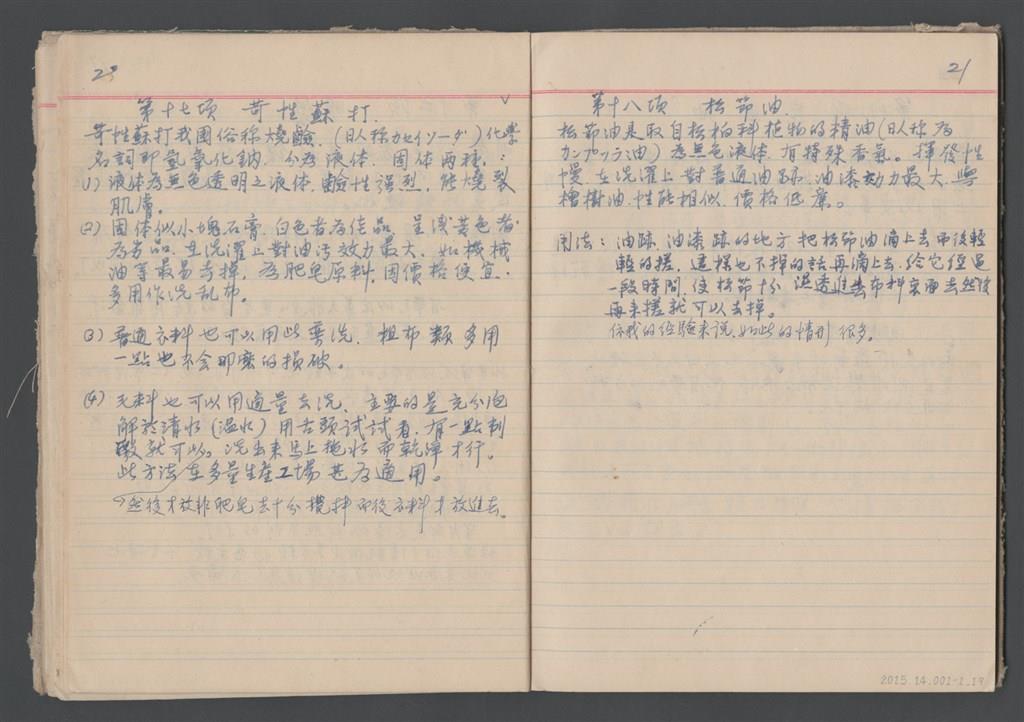 第十七項 苛性蘇打.
苛性蘇打我國俗称燒鹼.(日人称カセイソーダ)化學
名詞即氫氧化鈉. 分為液体. 固体两種.
(1) 液体為無色透明之液体. 鹼性强烈. 能燒裂
肌膚。
(2) 固体似小塊石膏. 白色者為佳品. 呈浅黃色者
為劣品. 在洗濯上對油污效力最大. 如機械
油等最易去掉. 為肥皂原料. 因價格便宜.
多用作洗乱布。
(3) 普通衣料也可以用此要洗. 粗布類多用
一點也不会那麽的損破。
(4) 毛料也可以用適量去洗. 主要的是充分溶
解於清水(温水)用舌頭試試看. 有一點刺
激就可以。洗出来馬上拖水而乾淨才行。
此方法在多量生産工場甚為適用。
然後才放非肥皂去十分攪拌而後衣料才放進去。
21
第十八項 松節油.
松節油是取自松柏科植物的精油(日人称為
カンプッラ油)為無色液体. 有特殊香氣。揮發性
慢在洗濯上對普通油跡. 油漆効力最大. 與
檜樹油. 性能相似. 價格低廉。
用法: 油跡. 油漆跡的地方把松節油滴上去而後輕
輕的搓. 這樣也不掉的話再滴上去. 給它經過
一段時間. 使松節十分湿透進去布料裏面去然後
再来搓就可以去掉。
依我的经驗来説. 如此的情形很多。
2015.14.001-1.19